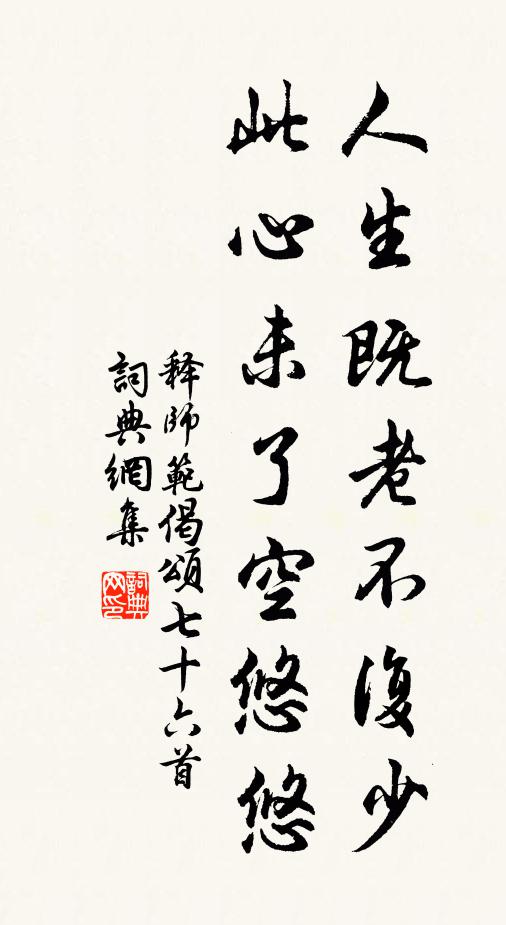 人生既老不復少
此心未了空悠悠
释師範偈頌七十六首
詞典網集
詞典网印